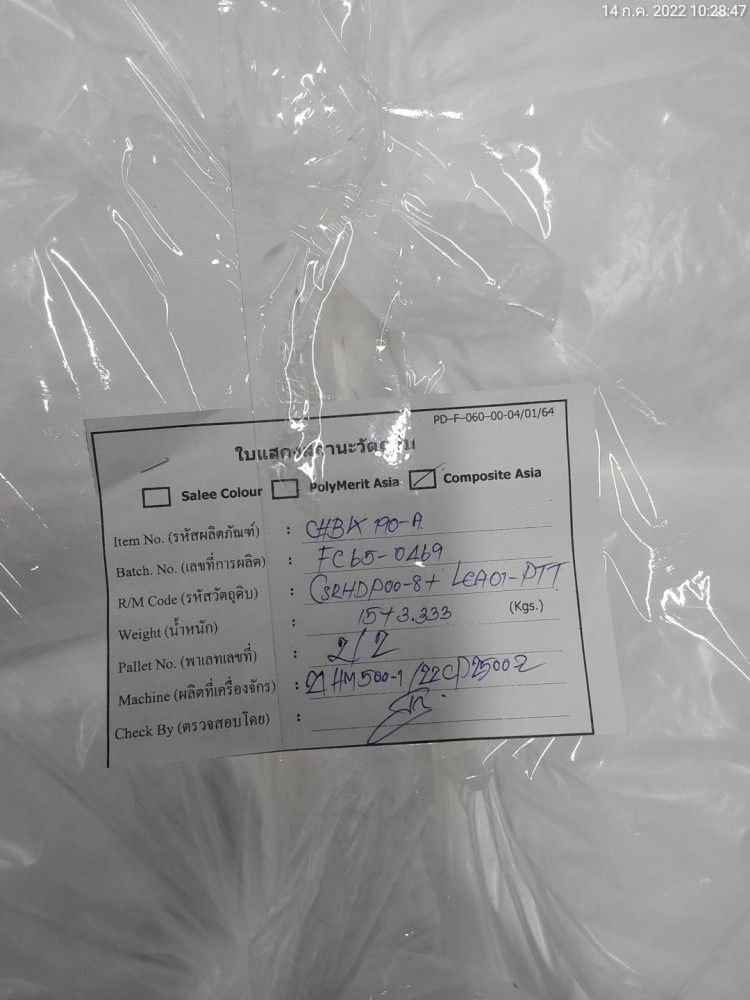 14 ก.ค. 2022 10:28:47
PD-F-060-00-04/01/64
ใบแสดงสถานะวัตถุดิบ
Salee Colour PolyMerit Asia Composite Asia
Item No. (รหัสผลิตภัณฑ์) : CHBK 190-A
Batch. No. (เลขที่การผลิต) : FC65-0469
R/M Code (รหัสวัตถุดิบ) : CSRHDP00-8+ LCA01-PTT
Weight (น้ำหนัก) : 15+3.333 (Kgs.)
Pallet No. (พาเลทเลขที่) : 2/2
Machine (ผลิตที่เครื่องจักร) : 21HM500-1/22CP25002
Check By (ตรวจสอบโดย) :